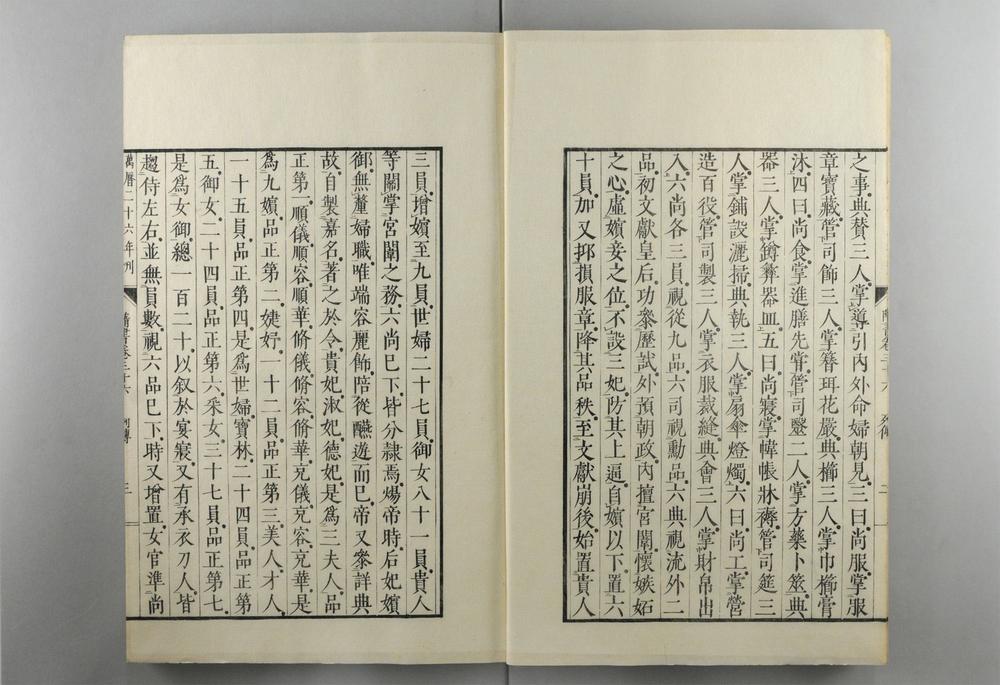 之事典贊三人掌導引內外命婦朝見三曰尚服掌服
章寶藏管司飾三人掌簪珥花嚴典櫛三人掌巾櫛膏
沐四曰尚食掌進膳先甞管司醫二人掌方藥卜筮典
器三人掌罇彝器皿五曰尚寢掌幃帳牀褥管司筵三
人掌鋪設灑掃典執三人掌扇傘燈燭六曰尚工掌營
造百役管司製三人掌衣服裁縫典會三人掌財帛出
入六尚各三員視從九品六司視勳品六典視流外二
品初文獻皇后功參歷試外預朝政內擅宮闈懷嫉妬
之心虛嬪妾之位不設三妃防其上逼自嬪以下置六
十員加又抑損服章降其品秩至文獻崩後始置貴人
三員增嬪至九員世婦二十七員御女八十一員貴人
等關掌宮闈之務六尚已下皆分隸焉煬帝時后妃嬪
御無釐婦職唯端容麗飾陪從醼遊而已帝又參詳典
故自製嘉名著之於令貴妃淑妃德妃是爲三夫人品
正第一順儀順容順華脩儀脩容脩華充儀充容充華是
爲九嬪品正第二婕妤一十二員品正第三美人才人
一十五員品正第四是爲世婦寶林二十四員品正第
五御女二十四員品正第六采女三十七員品正第七
是爲女御總一百二十以叙於宴寢又有承衣刀人皆
趨侍左右並無員數視六品已下時又增置女官準尚
萬曆二十六年刊 隋書卷三十六 列傳 三